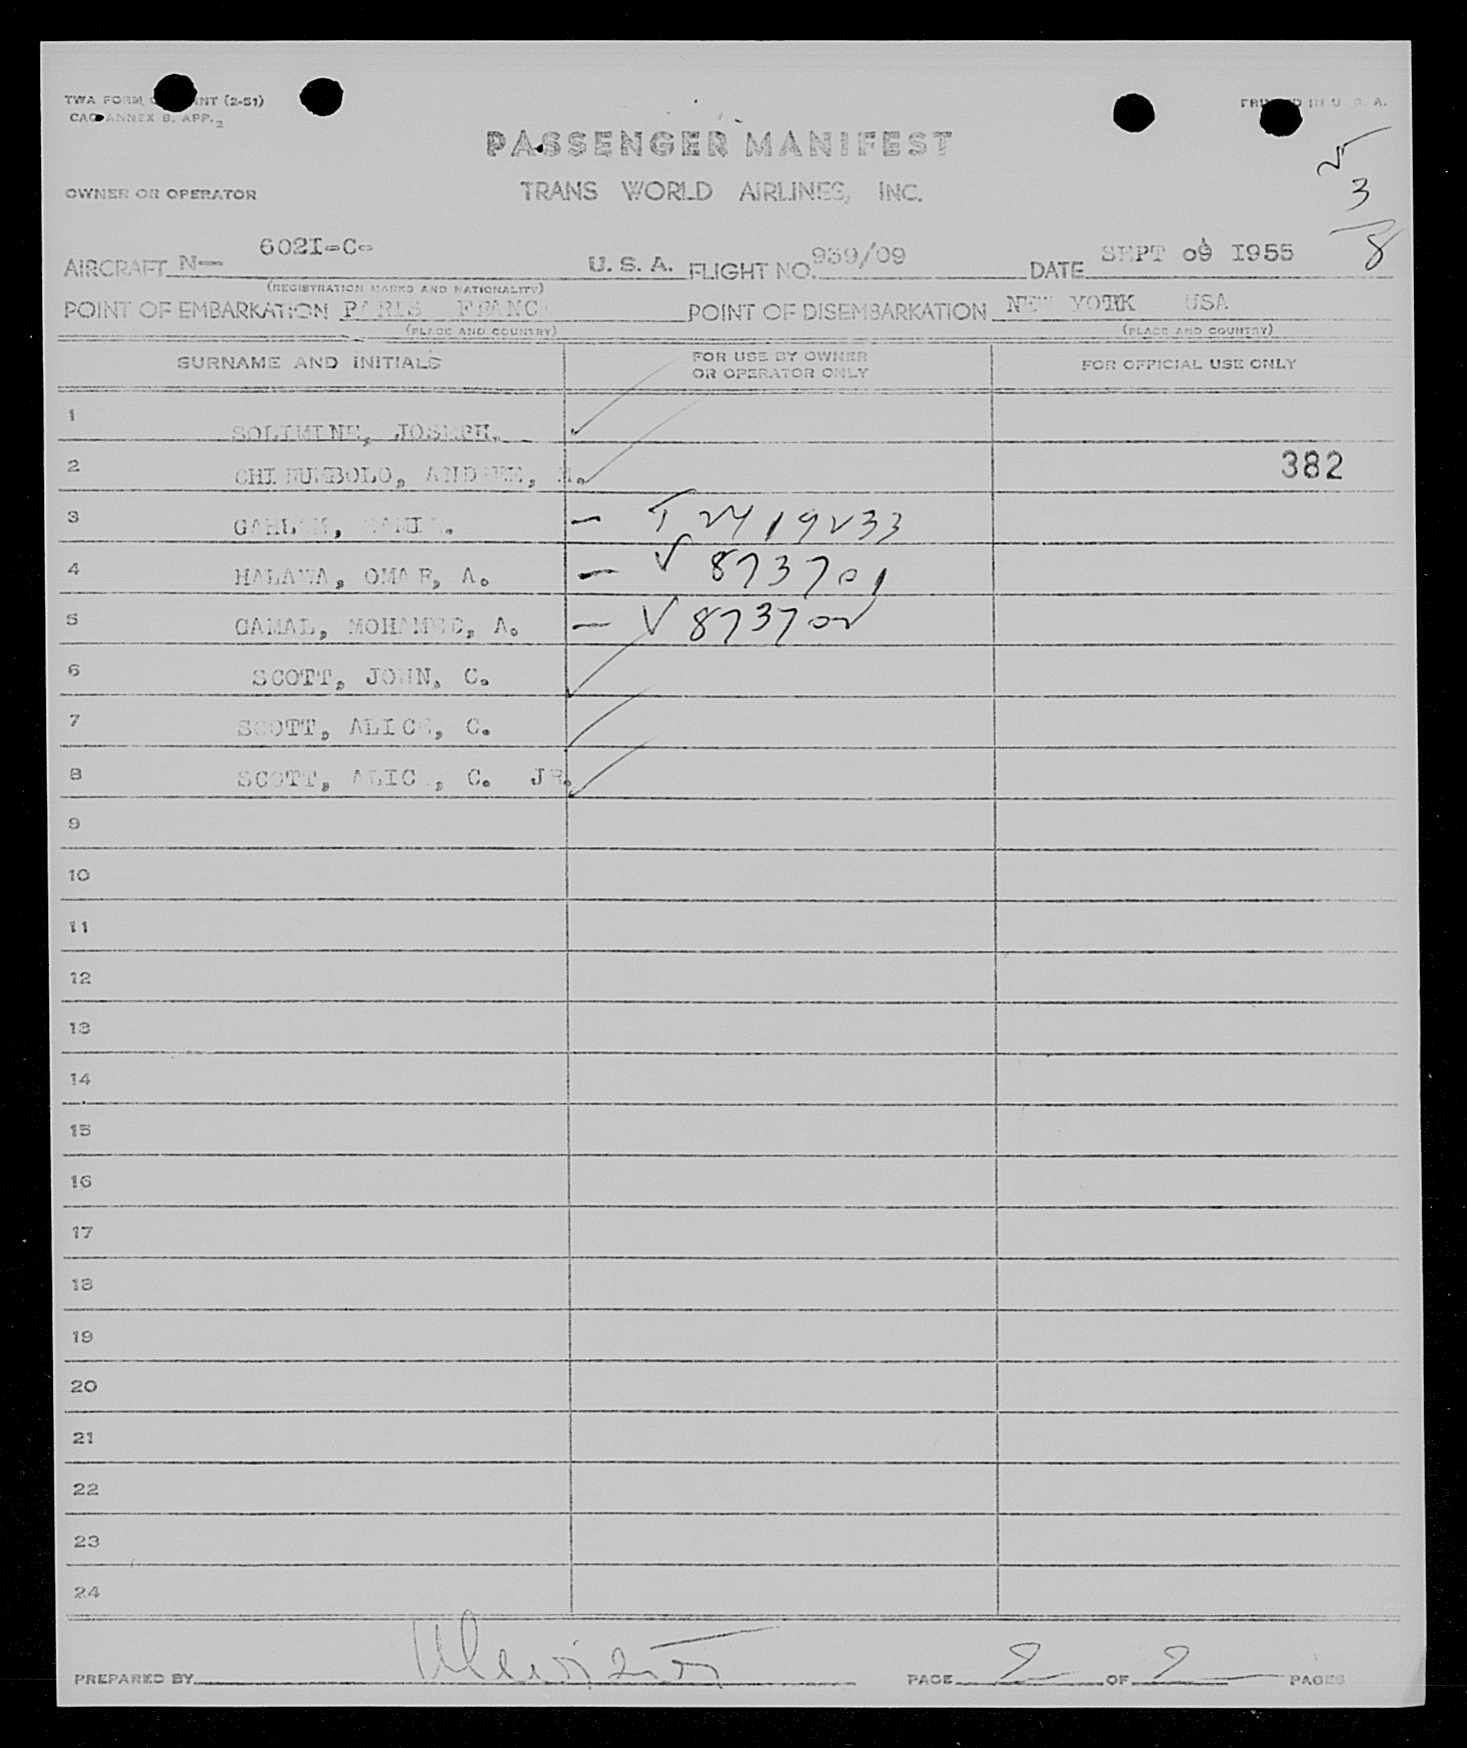 TWA FORM INT (2-51)
ICAO ANNEX 9, APP. 2
PRINTED IN U. S. A.
PASSENGER MANIFEST
5
OWNER OR OPERATOR TRANS WORLD AIRLINES, INC.
3
8
AIRCRAFT N— 602I-C- U. S. A. FLIGHT NO. 939/09 DATE SEPT 09 I955
(REGISTRATION MARKS AND NATIONALITY)
POINT OF EMBARKATION PARIS FRANCE POINT OF DISEMBARKATION NEW YORK USA
(PLACE AND COUNTRY) (PLACE AND COUNTRY)
SURNAME AND INITIALS FOR USE BY OWNER OR OPERATOR ONLY FOR OFFICIAL USE ONLY
1 SOLIMINE, JOSEPH.
2 ANDREE, M. 382
3 — T2419233
4 HALAWA, OMAR, A. — V 873701
5 GAMAL, MOHAMED, A. — V 873702
6 SCOTT, JOHN, C.
7 SCOTT, ALICE, C.
8 SCOTT, ALICE, C. JR.
9
10
11
12
13
14
15
16
17
18
19
20
21
22
23
24
PREPARED BY PAGE 2 OF 2 PAGES